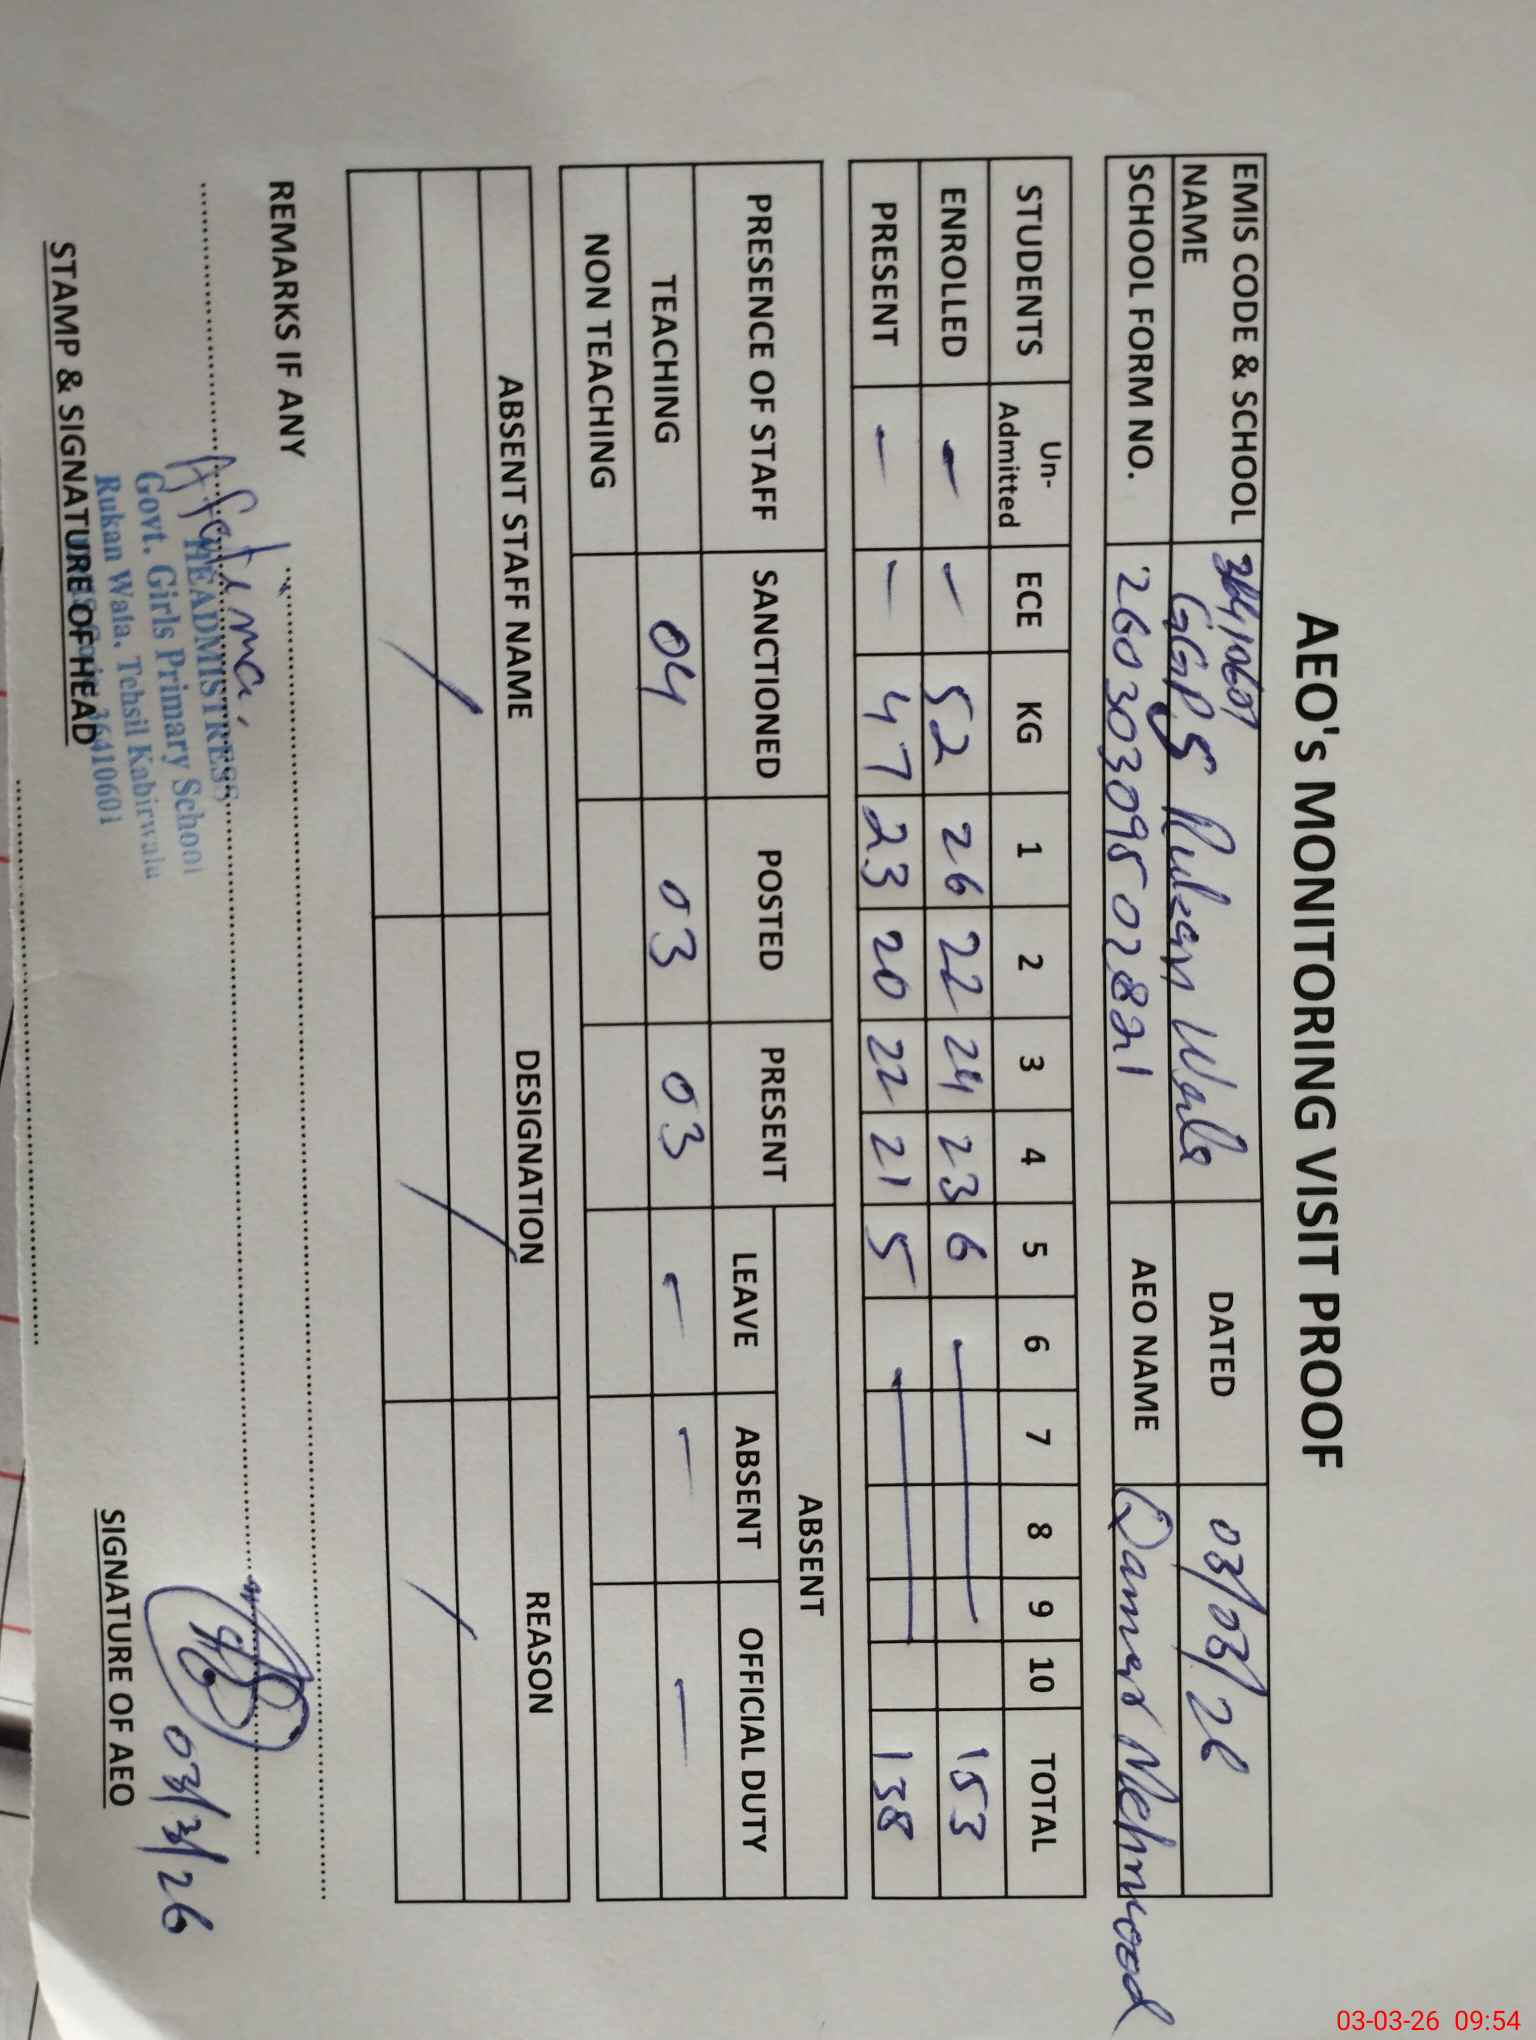 AEO's MONITORING VISIT PROOF
EMIS CODE & SCHOOL NAME 36410601 GGPS Rukan Wala DATED 03/03/26
SCHOOL FORM NO. AEO NAME Qamar Mehmood
STUDENTS Un-Admitted ECE KG 1 2 3 4 5 6 7 8 9 10 TOTAL
ENROLLED - - 52 26 22 24 23 6 — 153
PRESENT - - 47 23 20 22 21 5 — 138
PRESENCE OF STAFF SANCTIONED POSTED PRESENT ABSENT
LEAVE ABSENT OFFICIAL DUTY
TEACHING 04 03 03 - - -
NON TEACHING
ABSENT STAFF NAME DESIGNATION REASON
/ / /
REMARKS IF ANY
HEADMISTRESS
Govt. Girls Primary School
Rukan Wala, Tehsil Kabirwala
36410601
STAMP & SIGNATURE OF HEAD
03/3/26
SIGNATURE OF AEO
03-03-26 09:54